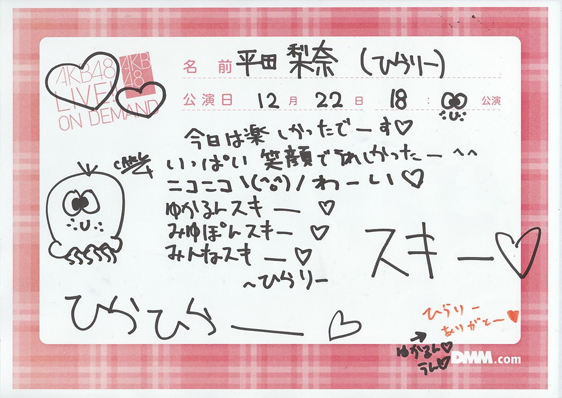 AKB48
LIVE!!
ON DEMAND
AKB
48
名前 平田梨奈 (ひらりー)
公演日 12月22日 18: 公演
今日は楽しかったでーす♡
いっぱい笑顔でうれしかったー^^
ニコニコ\(^o^)/わーい♡
ゆかるんスキー ♡
みゆぽんスキー ♡
みんなスキー♡
~ひらりー
スキー♡
ひらひらー♡
ひらりー
ありがとー♡
→
ゆかるん♡
うん♡
DMM.com